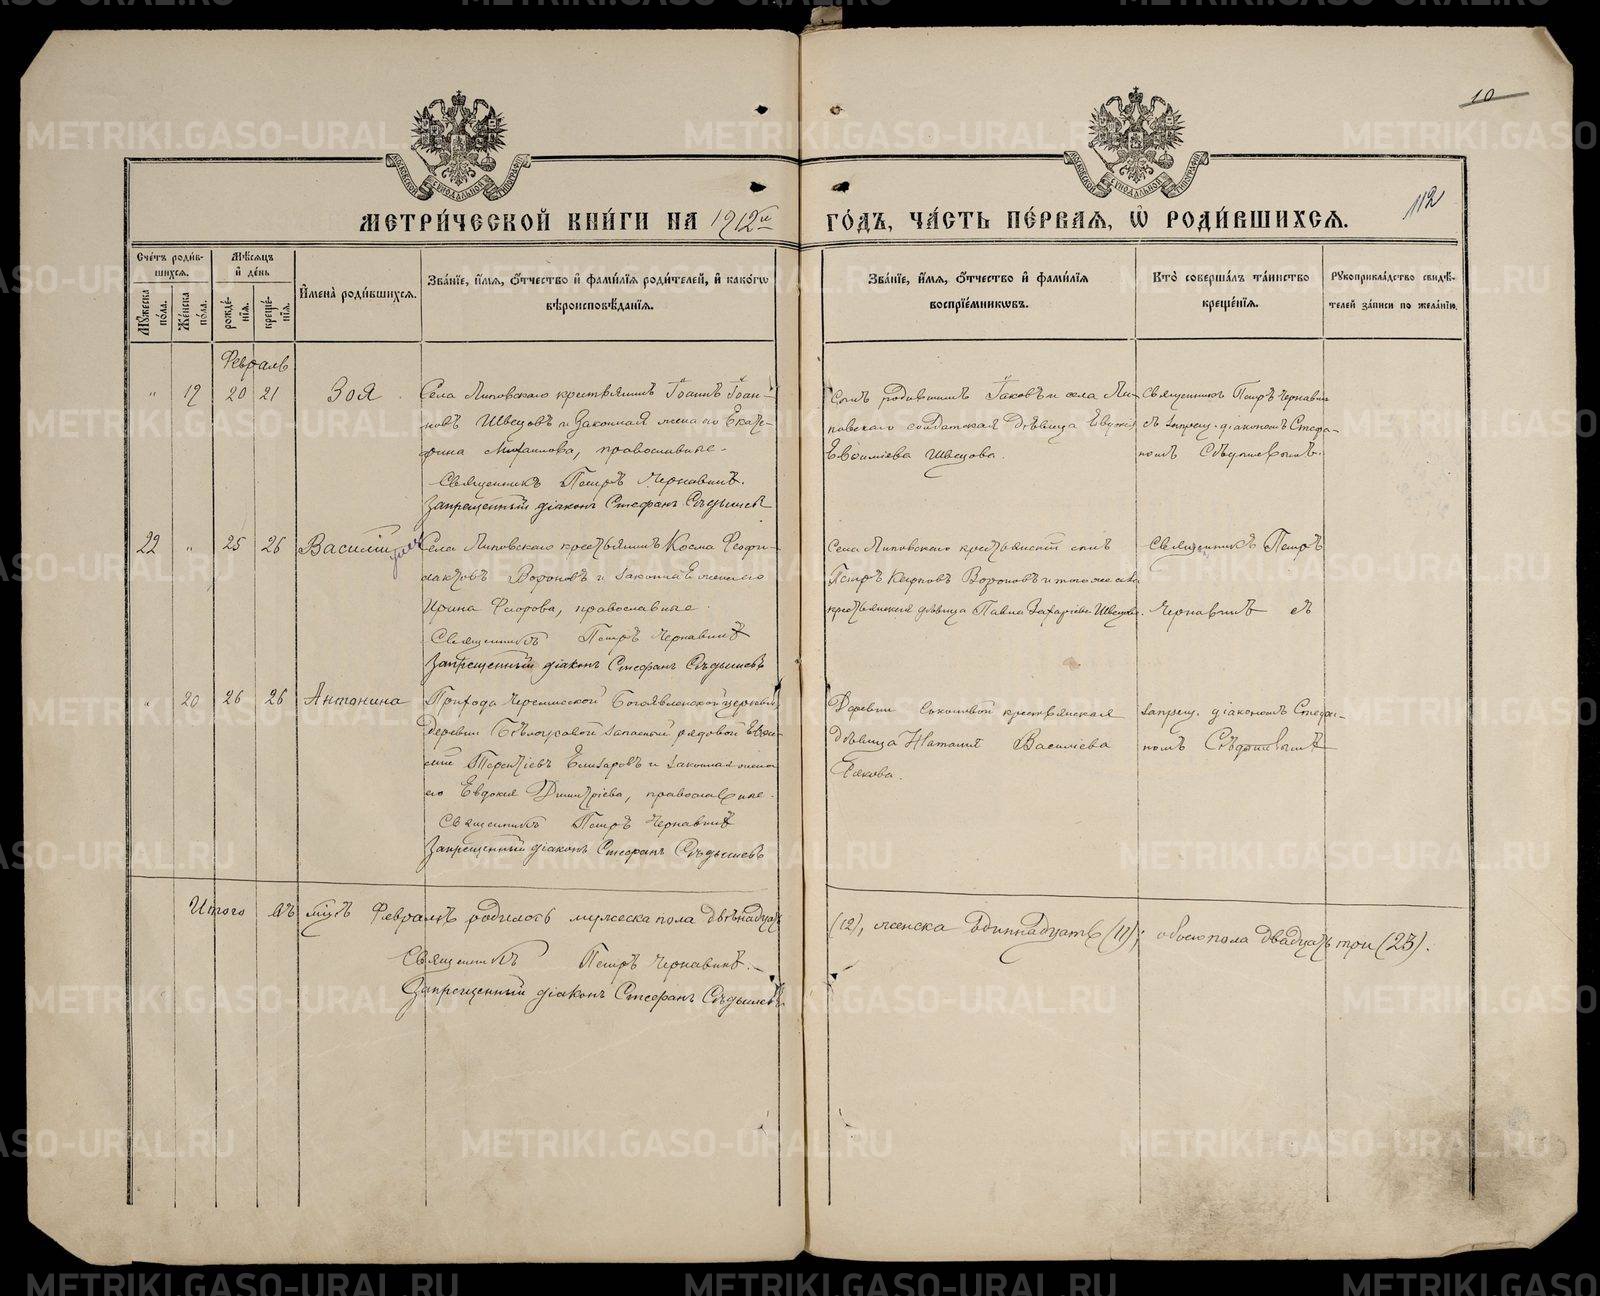 10
112
МЕТРИ́ЧЕСКОЙ КНИ́ГИ НА 1912й ГО́ДЪ, ЧА́СТЬ ПЕ́РВАЯ, Ѡ҆ РОДИ́ВШИХСЯ.
Сче́тъ роди́в-
шихся.
Мꙋ́жеска по́ла.
Же́нска по́ла.
Мѣ́сяцъ
и҆ де́нь
рожде́-
нїя.
креще́-
нїя.
И҆мена̀ роди́вшихся.
Зва́нїе, и҆́мя, ѻ҆́тчество и҆ фами́лїя роди́телей, и҆ како́гѡ
вѣроисповѣ́данїя.
Зва́нїе, и҆́мя, ѻ҆́тчество и҆ фами́лїя
воспрїе́мникѡвъ.
Кто̀ соверша́лъ та́инство
креще́нїя.
Рꙋкоприкла́дство свидѣ́-
телей за́писи по жела́нїю.
Февраль
" 19 20 21 Зоя
Села Липовскаго крестьянинъ Іоаннъ Іоан-
новъ Швецовъ и законная жена его Екате-
рина Михаилова, православные.
Священникъ Петръ Чернавинъ.
Запрещенный діаконъ Стефанъ Сѣдышевъ
Сынъ родившихъ Іаковъ и села Ли-
повскаго солдатская дѣвица
Евѳиміева Швецова.
Священникъ Петръ Чернавинъ
съ запрещ. діакономъ Стефа-
номъ Сѣдышевымъ.
22 " 25 26 Василій
Села Липовскаго крестьянинъ Косма Феофи-
лактовъ Вороновъ и законная жена его
Ирина Флорова, православные.
Священникъ Петръ Чернавинъ
Запрещенный діаконъ Стефанъ Сѣдышевъ
Села Липовскаго крестьянскій сынъ
Петръ Карповъ Вороновъ и того же села
крестьянская дѣвица Павла Захаріева Швецова.
Священникъ Петръ
Чернавинъ съ
" 20 26 26 Антонина
Прихода Черемисской Богоявленской церкви,
деревни запасный рядовой Евѳи-
мій Терентіевъ Елизаровъ и законная жена
его Евдокія Димитріева, православные.
Священникъ Петръ Чернавинъ
Запрещенный діаконъ Стефанъ Сѣдышевъ
Деревни Соколовой крестьянская
дѣвица Наталія Василіева
запрещ. діакономъ Стефа-
номъ Сѣдышевымъ
Итого въ мцѣ Февралѣ родилось мужеска пола двѣнадцать (12), женска одиннадцать (11); обоего пола двадцать три (23).
Священникъ Петръ Чернавинъ.
Запрещенный діаконъ Стефанъ Сѣдышевъ
METRIKI.GASO-URAL.RU